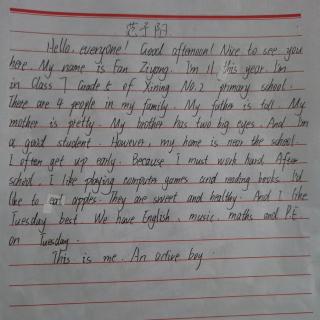 范子阳
Hello, everyone! Good afternoon! Nice to see you
here. My name is Fan Ziyang. I'm 11 this year. I'm
in Class 7 Grade 5 of Xining No.2 primary school.
There are 4 people in my family. My father is tall. My
mother is pretty. My brother has two big eyes. And I'm
a good student. However, my home is near the school.
I often get up early. Because I must work hard. After
school, I like playing computer games and reading books. I'd
like to eat apples. They are sweet and healthy. And I like
Tuesday best. We have English, music, maths and P.E
on Tuesday.
This is me. An active boy.